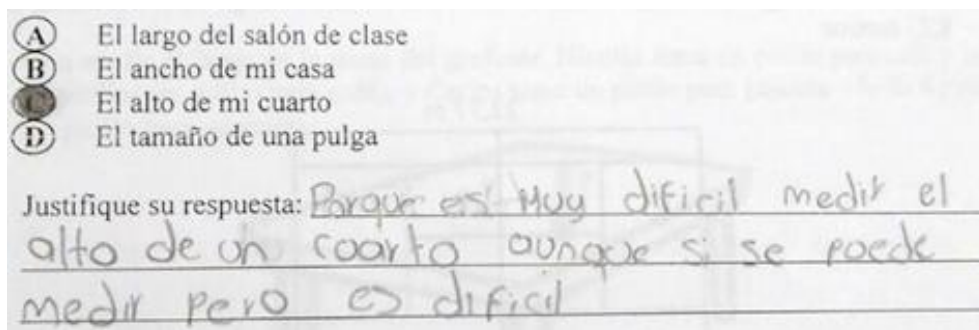 A El largo del salón de clase
B El ancho de mi casa
C El alto de mi cuarto
D El tamaño de una pulga
Justifique su respuesta: Porque es Muy dificil medir el
alto de un cuarto aunque si se puede
medir pero es dificil